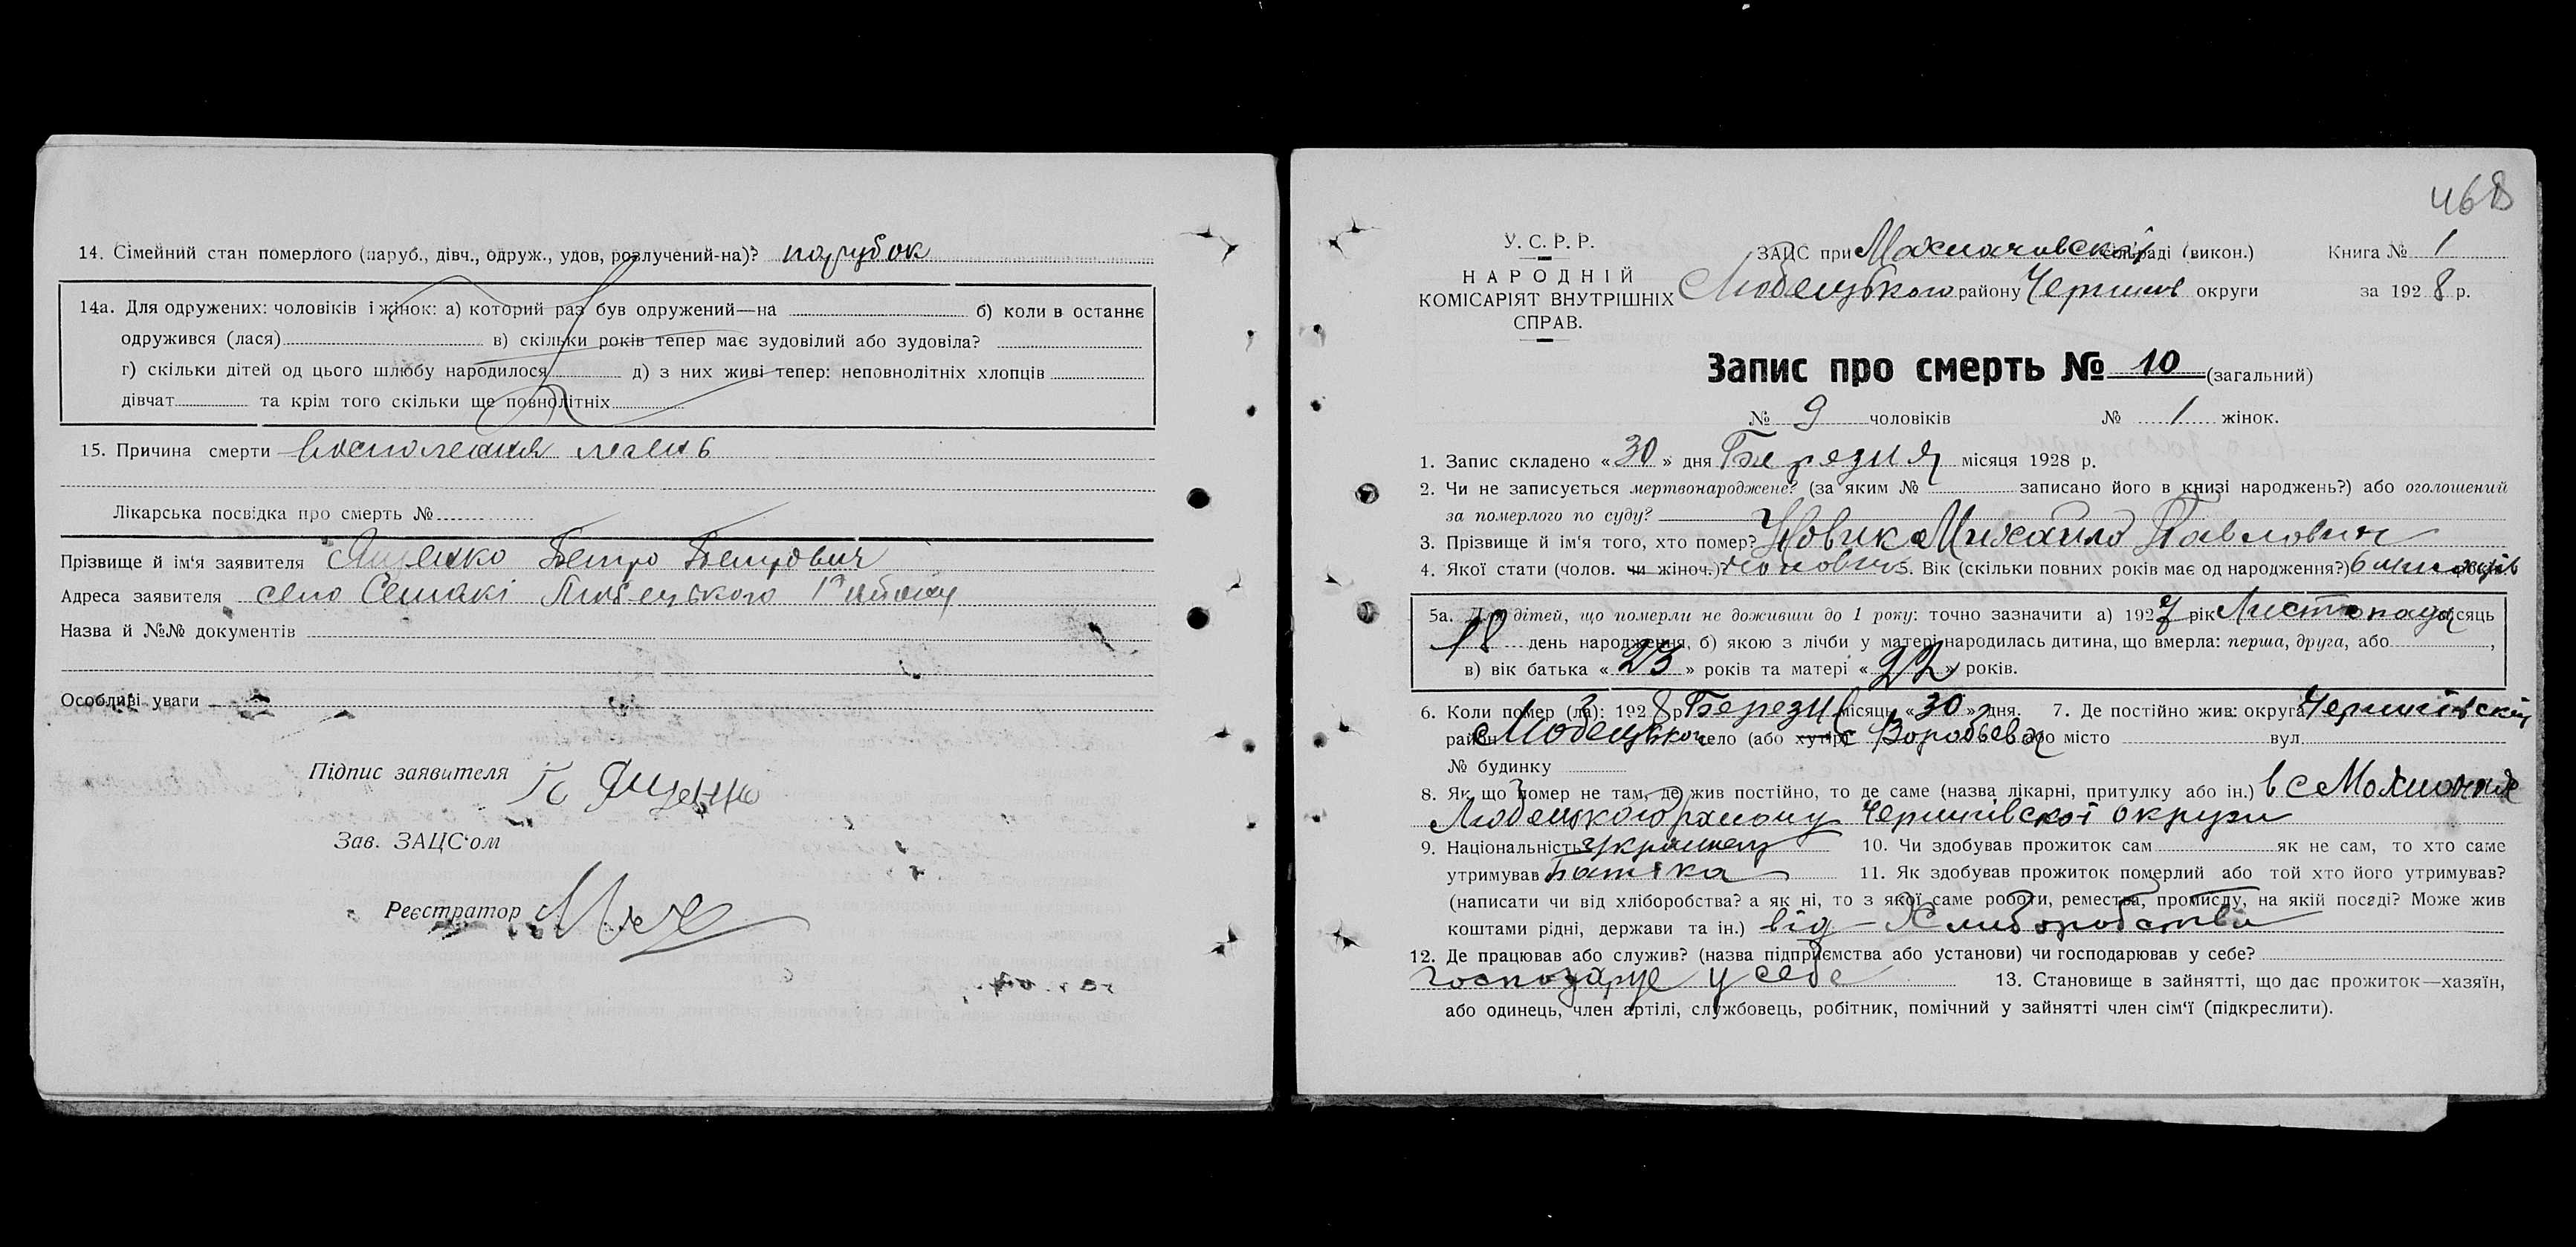 14. Сімейний стан померлого (паруб., дівч., одруж., удов, розлучений-на)? парубок
14а. Для одружених: чоловіків і жінок: а) который раз був одружений—на б) коли в останнє
одружився (лася) в) скільки років тепер має зудовілий або зудовіла?
г) скільки дітей од цього шлюбу народилося д) з них живі тепер: неповнолітніх хлопців
дівчат та крім того скільки ще повнолітніх
15. Причина смерти легень
Лікарська посвідка про смерть №
Прізвище й ім'я заявителя Ященко Петро Петрович
Адреса заявителя село Семакі Любецького
Назва й №№ документів
Особливі уваги
Підпис заявителя П Ященко
Зав. ЗАЦС'ом
Реєстратор
468
У. С. Р. Р.
НАРОДНІЙ
КОМІСАРІЯТ ВНУТРІШНІХ
СПРАВ.
ЗАЦС при сільраді (викон.)
Любецького району Чернигов округи
Книга № 1
за 1928 р.
Запис про смерть № 10 (загальний)
№ 9 чоловіків № 1 жінок.
1. Запис складено «30» дня Березня місяця 1928 р.
2. Чи не записується мертвонароджене? (за яким № записано його в книзі народжень?) або оголошений
за померлого по суду?
3. Прізвище й ім'я того, хто помер? Новик Михайло Павлович
4. Якої стати (чолов. чи жіноч.)? 5. Вік (скільки повних років має од народження?) 6
5а. Для дітей, що померли не доживши до 1 року: точно зазначити а) 1927 рік Листопада місяць
18 день народження, б) якою з лічби у матері народилась дитина, що вмерла: перша, друга, або ,
в) вік батька «23» років та матері «22» років.
6. Коли помер (ла): 1928 р. місяць «30» дня. 7. Де постійно жив: округа
район село (або хутір) або місто вул.
№ будинку
8. Як що помер не там, де жив постійно, то де саме (назва лікарні, притулку або ін.) в с
Любецького району Чернигівскої округи
9. Національність 10. Чи здобував прожиток сам як не сам, то хто саме
утримував Батька 11. Як здобував прожиток померлий або той хто його утримував?
(написати чи від хліборобства? а як ні, то з якої саме роботи, ремества, промислу, на якій посаді? Може жив
коштами рідні, держави та ін.) від Хлиборобства
12. Де працював або служив? (назва підприємства або установи) чи господарював у себе?
господарує у себе 13. Становище в зайнятті, що дає прожиток—хазяїн,
або одинець, член артілі, службовець, робітник, помічний у зайнятті член сім'ї (підкреслити).